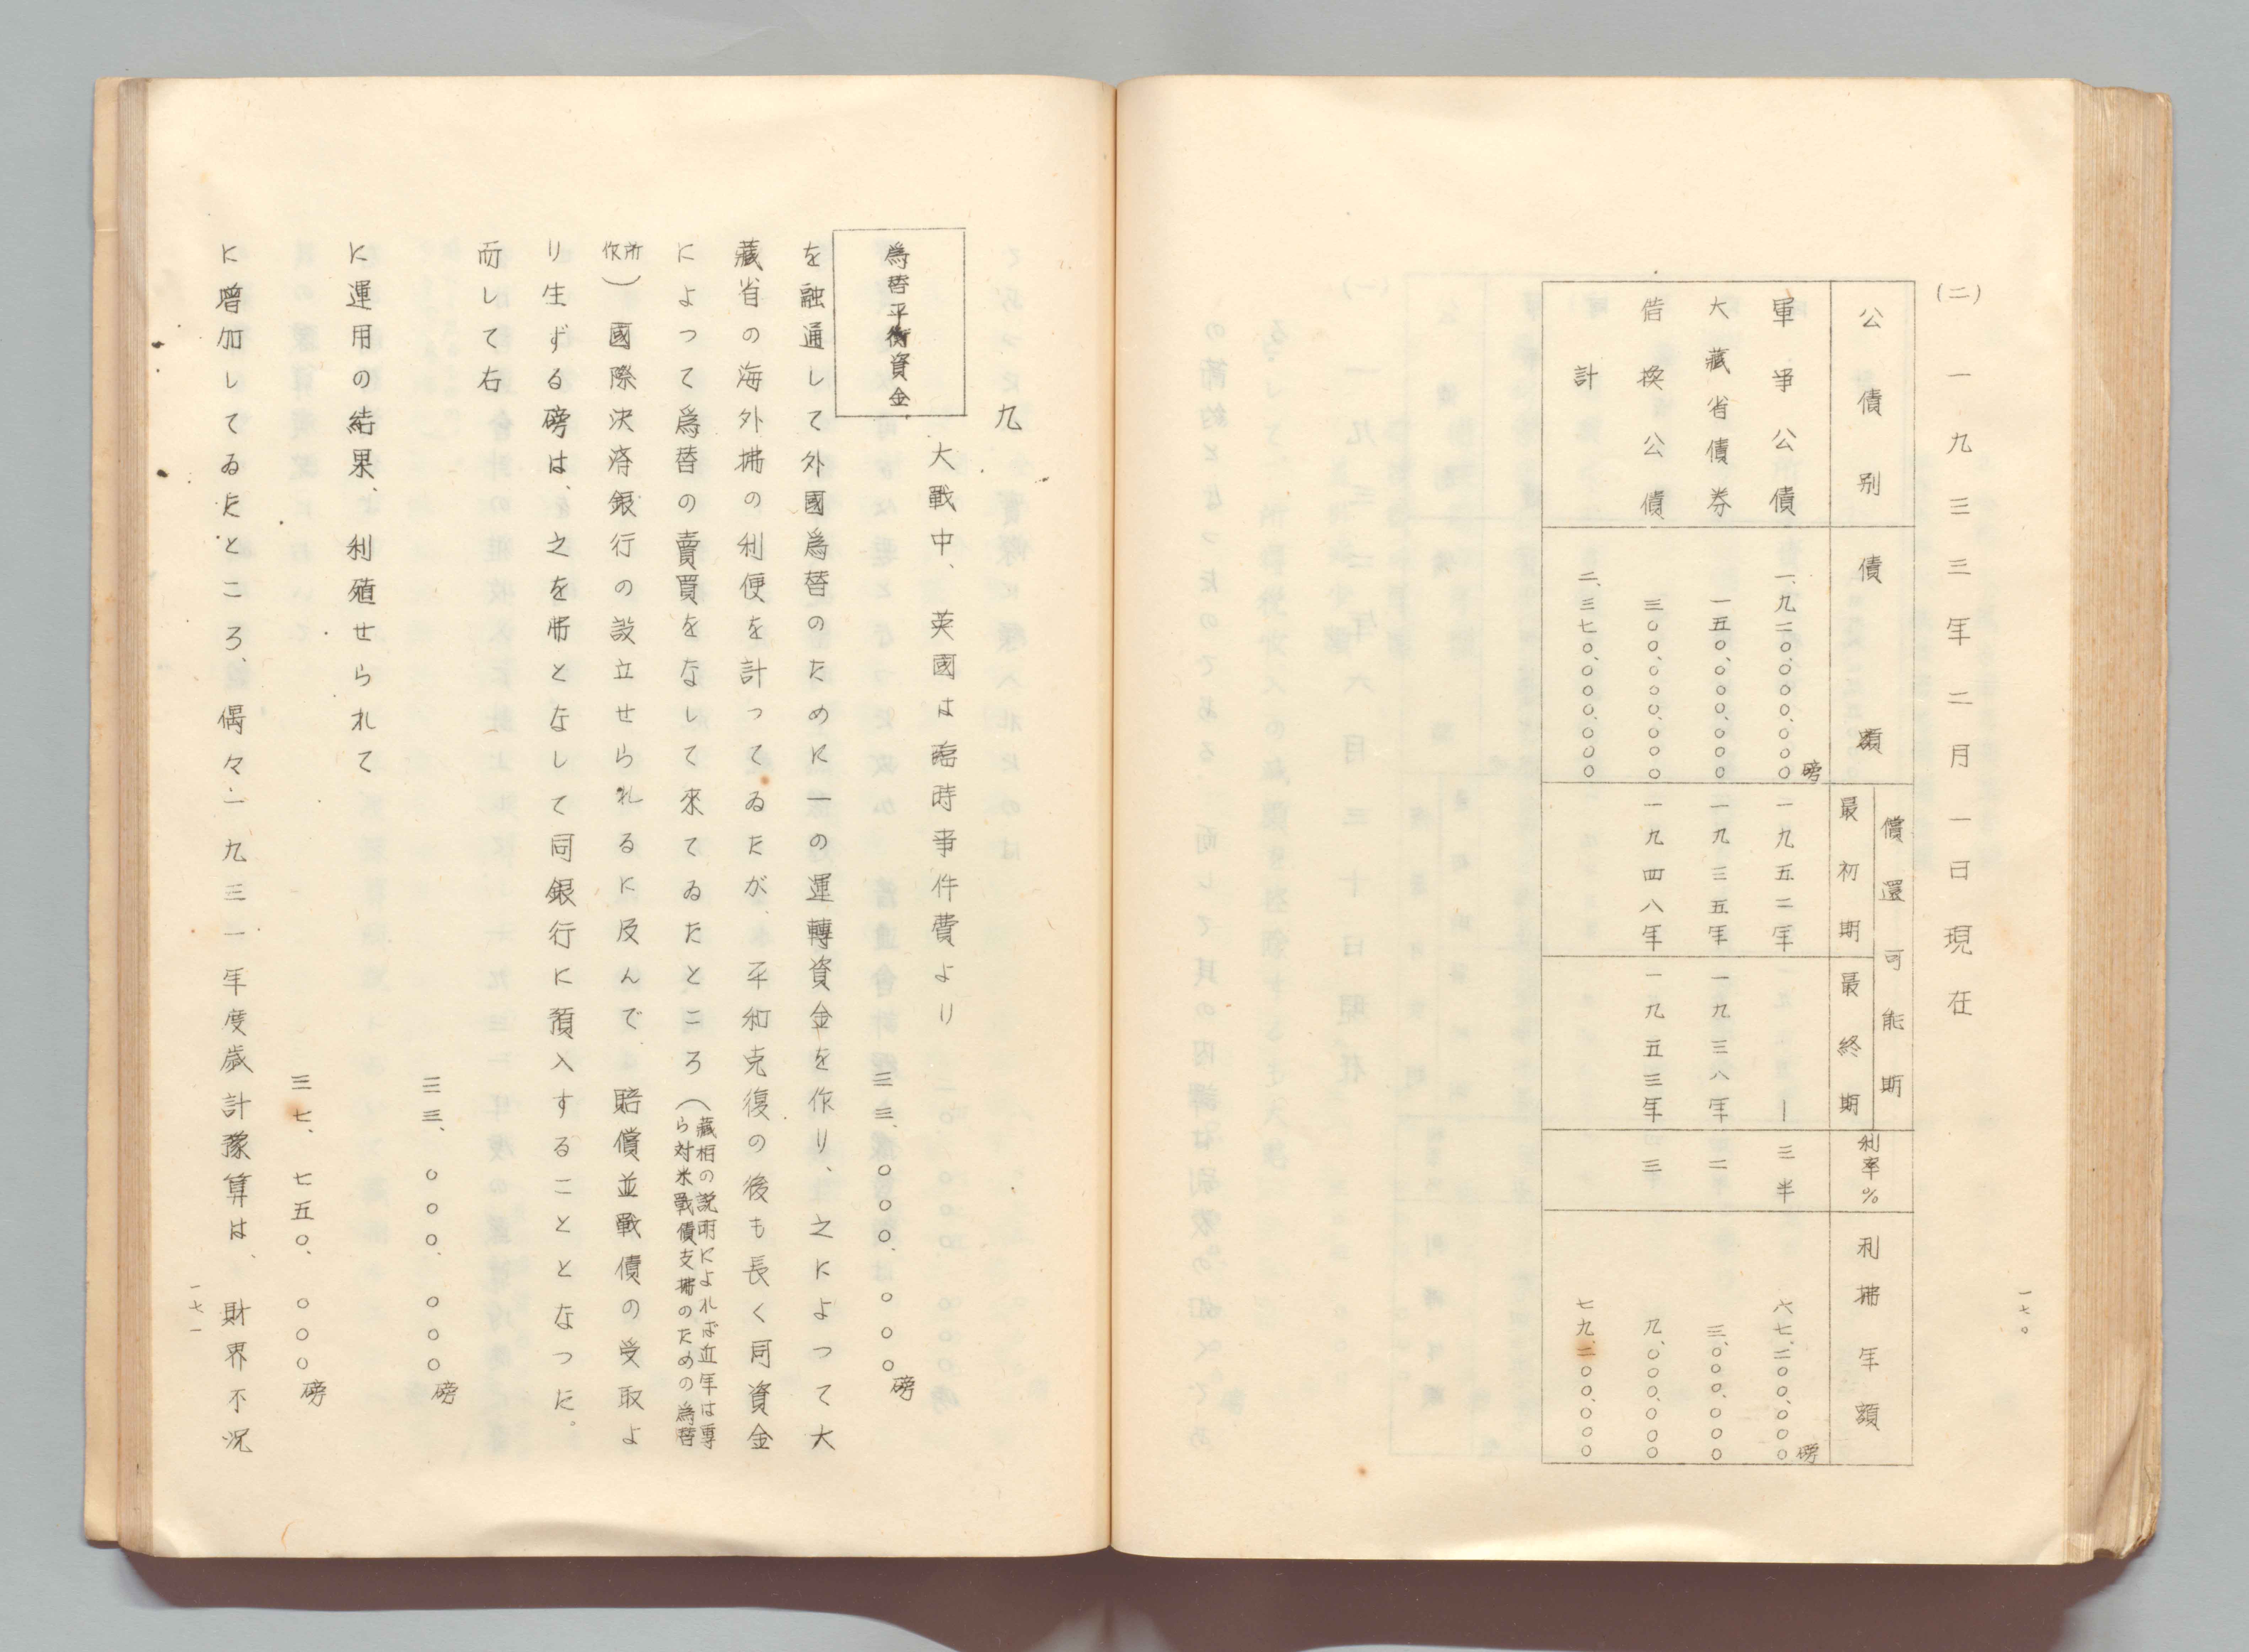 (二) 一九三三年二月一日現在
公債別 債額 償還可能期 最初期 最終期 利率% 利拂年額
軍事公債 一、九二〇、〇〇〇、〇〇〇磅 一九五二年 ー 三半 六七、二〇〇、〇〇〇磅
大藏省債券 一五〇、〇〇〇、〇〇〇 一九三五年 一九三八年 二 三、〇〇〇、〇〇〇
借換公債 三〇〇、〇〇〇、〇〇〇 一九四八年 一九五三年 三 九、〇〇〇、〇〇〇
計 二、三七〇、〇〇〇、〇〇〇 七九、二〇〇、〇〇〇
一七〇
九
爲替平衡資金
大戰中、英國は臨時事件費より
三三、〇〇〇、〇〇〇磅
を融通して外國爲替のために一の運轉資金を作り、之によつて大
藏省の海外拂の利便を計つてゐたが、平和克復の後も長く同資金
によつて爲替の賣買をなして來てゐたところ(藏相の説明によれば近年は專
ら対米戰債支拂のための爲替
所
作)國際決済銀行の設立せられるに及んで賠償並戰債の受取よ
り生ずる磅は、之を幣となして同銀行に預入することとなつた。
而して右
三三、〇〇〇、〇〇〇磅
に運用の結果、利殖せられて
三七、七五〇、〇〇〇磅
に増加してゐたところ、偶々一九三一年度歳計豫算は、財界不況
一七一